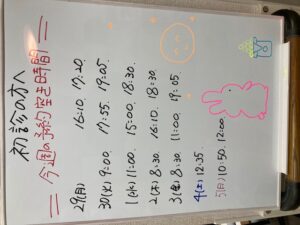 初診の方へ
＝今週の予約空き時間＝
29(月) 16:10. 17:20.
30(火) 9:00. 17:55. 19:05.
1(水) 11:00. 15:00. 18:30.
2(木) 8:30. 16:10. 18:30.
3(金) 8:30. 11:00. 19:05.
4(土) 12:35.
5(日) 10:50. 12:00